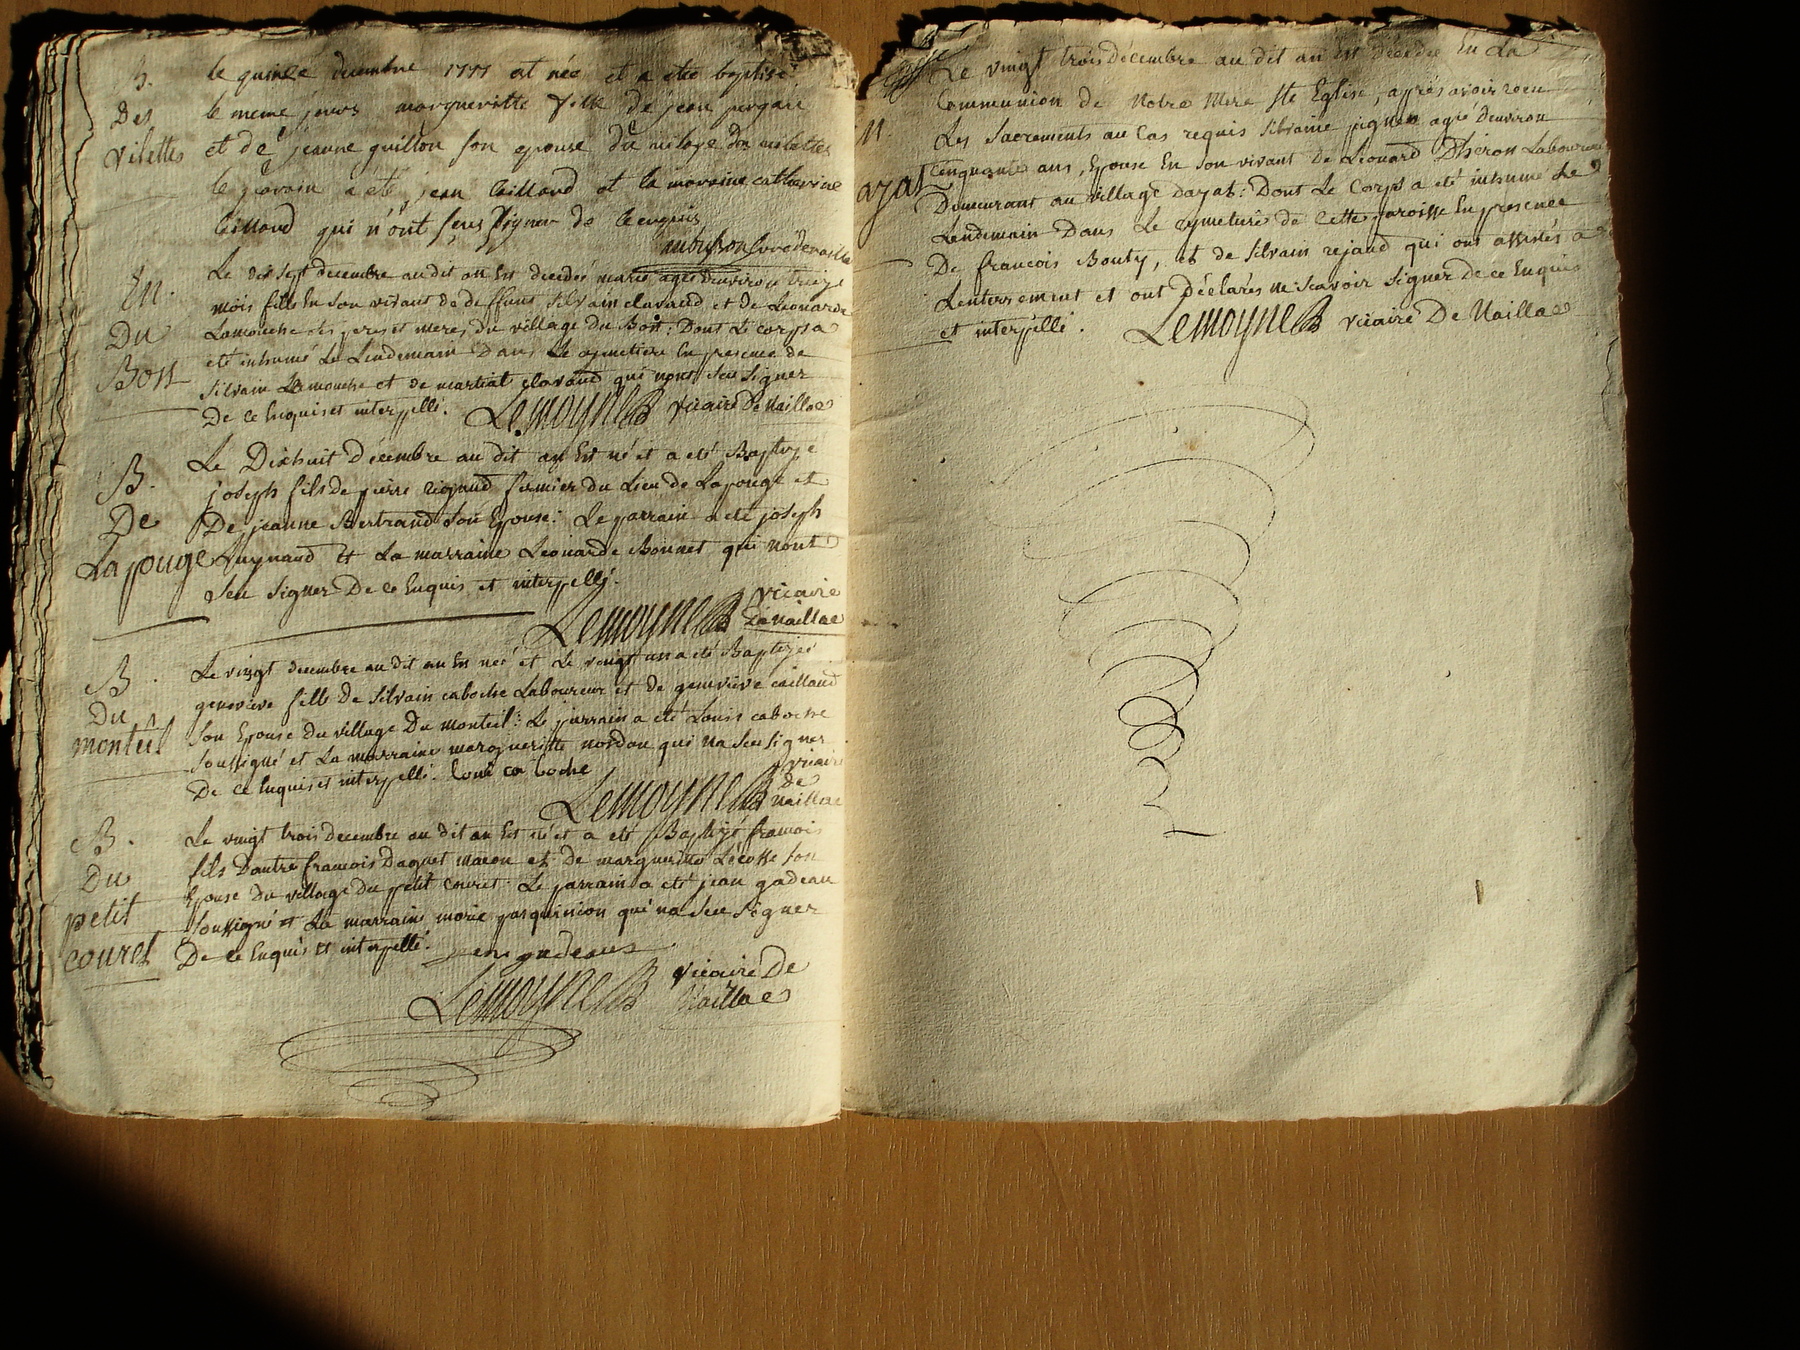 B.
Des
vilettes
le quinze decembre 1777 est née et a etée baptisé
le meme jours margueritte fille de jean
et de jeanne guillon son epouse du vilage des vilettes
le parain a été jean Caillaud et la maraine catherine
Caillaud qui n'ont sçeus signer de ce enquis
curé de naillac
En.
Du
Bost
Le dix sept decembre audit an Est decedée marie agée denviron treize
mois fille En son vivant de deffunt silvain clavaud et de Leonarde
Lamouche ses peres et meres du village du Bost : Dont Le corps a
eté inhumé Le Lendemain Dans Le cymetiere En presence de
Silvain Lamouche et de martial clavaud qui nont sceu signer
De ce Enquis et interpellé. LemoyneB vicaire De Naillac
B.
De
Lapouge
Le Dixhuit décembre au dit an Est né et a eté Baptizé
joseph fils de pierre rignaud fermier du Lieu de Lapouge et
De jeanne Bertrand son Epouse : Le parrain a eté joseph
Luynaud et La marraine Leonarde Bonnet qui nont
sceu signer De ce Enquis et interpellé.
LemoyneB vicaire
De naillac
B.
Du
monteil
Le vingt decembre au dit an Est née et Le vingt un a eté Baptizée
genevieve fille de Silvain caboche Laboureur et de genevieve caillaud
son Epouse du village Du monteil : Le parrain a eté Louis caboche
soussigné et La marraine margueritte nordon qui na sceu signer
De ce Enquis et interpellé. Loui ca boche
LemoyneB vicaire
de
Naillac
B.
Du
petit
couret
Le vingt trois decembre au dit an Est né et a eté Baptizé francois
fils Dautre francois Daguet macon et de margueritte Lécosse son
Epouse du village du petit couret : Le parrain a eté jean gadeau
soussigné et La marraine marie pasquinion qui na sceu signer
De ce Enquis et interpellé. jean gadeaux
LemoyneB vicaire De
Naillac
M.
ayat
Le vingt trois Décembre au dit an Est décédée En La
Communion de Notre Mere Ste Eglise, après avoir recu
Les Sacrements au Cas requis silvaine pignon agée denviron
cinquante ans, Epouse En son vivant de Léonard Dheron Laboureur
Demeurant au village dayat : Dont Le Corps a eté inhumé Le
Lendemain Dans Le cymetiere de Cette paroisse En presence
De francois Bouty, et de silvain rejaud qui ont assistés a
Lenterrement et ont Déclarés ne scavoir signer de ce Enquis
et interpellé. LemoyneB vicaire De Naillac